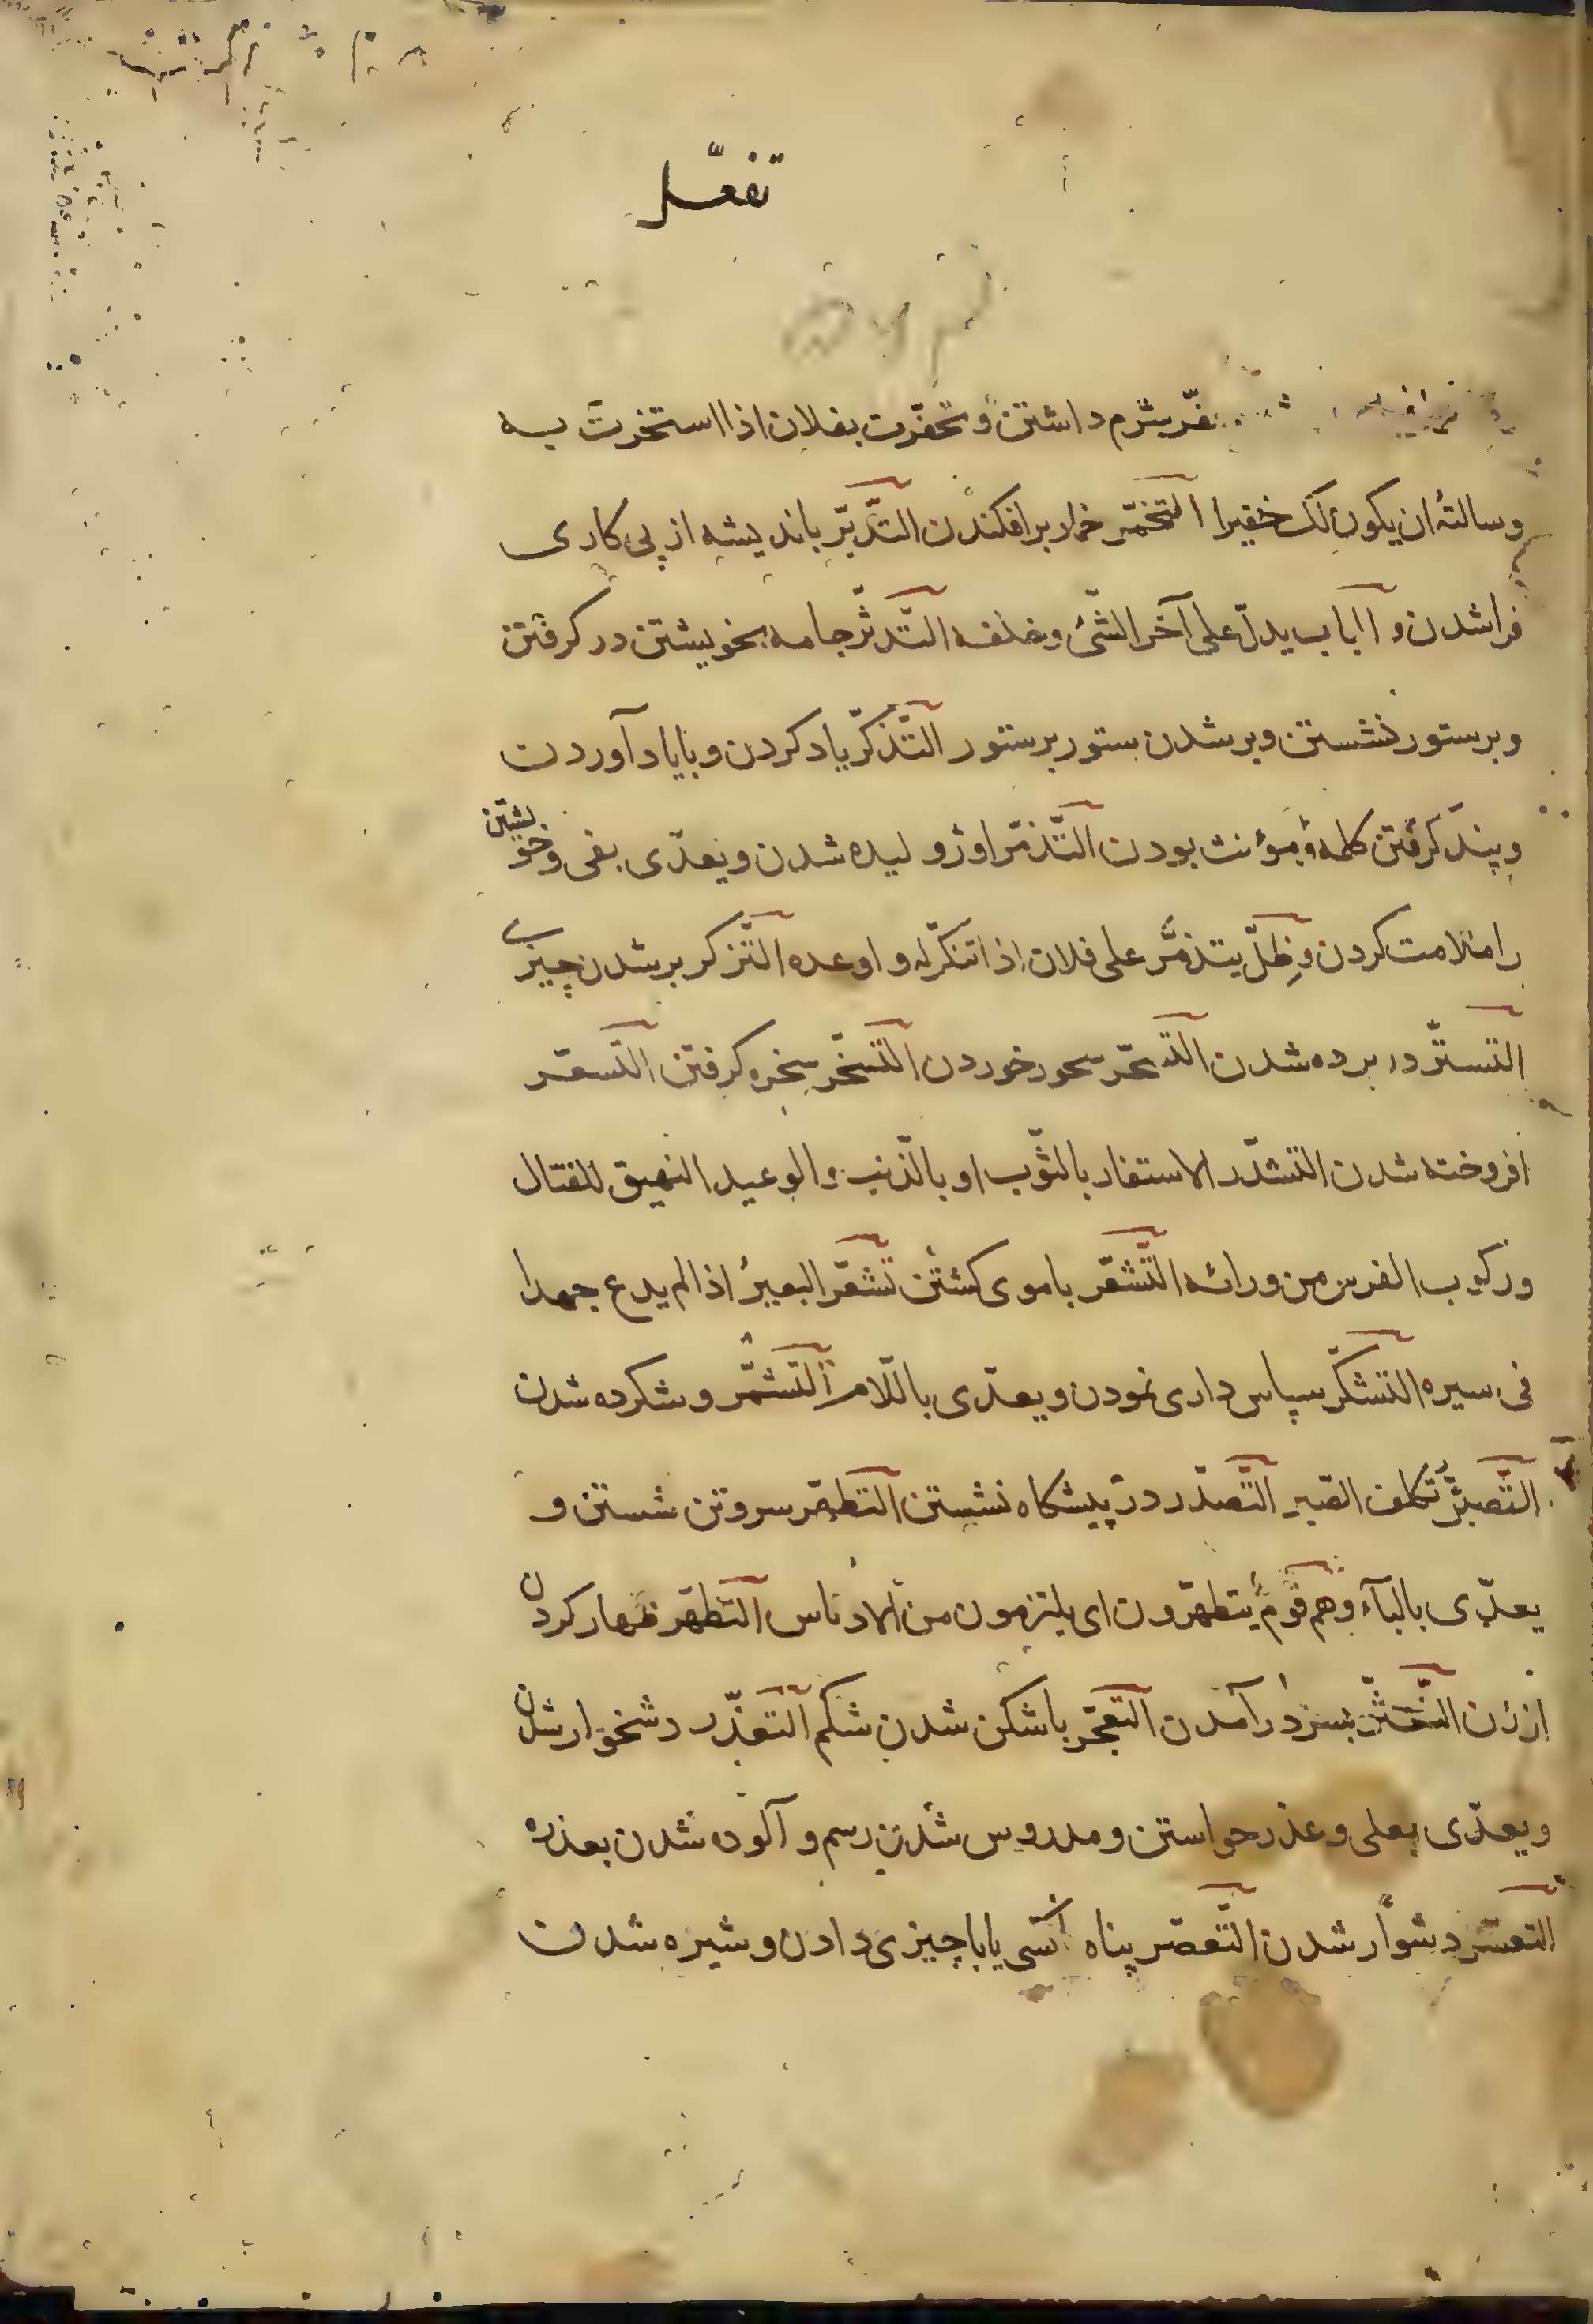 تفعّل
شرم داشتن و تخفّرت بفلان اذا استخرت به
وسالته ان يكون لك خفيرا التخمّر خمار برافكندن التدبّر بانديشه از پی کاری
فراشدن و الباب يدلّ على آخر الشّئ وخلفه التّدثّر جامه بخويشتن در كرفتن
وبرستور نشستن وبر شدن ستور برستور التّذكّر ياد كردن وبا ياد آوردن
وپند كرفتن كلمه مؤنث بودن التّذمّر اوژوليده شدن ويعدّى بفى وخويشتن
را ملامت كردن وظلّ يتذمّر على فلان اذا تنكّر له واوعده التّزكر بر شدن چيزى
التستّر در برده شدن التسحّر سحور خوردن التّسخّر سخره كرفتن التّسعّر
افروخته شدن التشذّر الاستفار بالثّوب او بالذّنب والوعيد التهيّؤ للقتال
وركوب الفرس من ورائه التّشعّر باموى كشتن تشعّر البعير اذا لم يدع جهدا
فى سيره التشكّر سپاس دارى نمودن ويعدّى باللّام التّشمّر وشكرده شدن
التّصبّر تكلف الصّبر التّصدّر در پيشكاه نشستن التطهّر سروتن شستن و
يعدّى بالباء وهم قوم يتطهّرون اى يلتزمون من الادناس التظهّر ظهار كردن
از زن التعثّر بسر درآمدن التعجّر باشكن شدن شكم التعذّر دشخوار شدن
ويعدّى بعلى وعذر خواستن ومدروس شدن رسم و آلوده شدن بعذره
التعسّر دشوار شدن التّعصّر پناه با كسى يا با چيزى دادن وشيره شدن